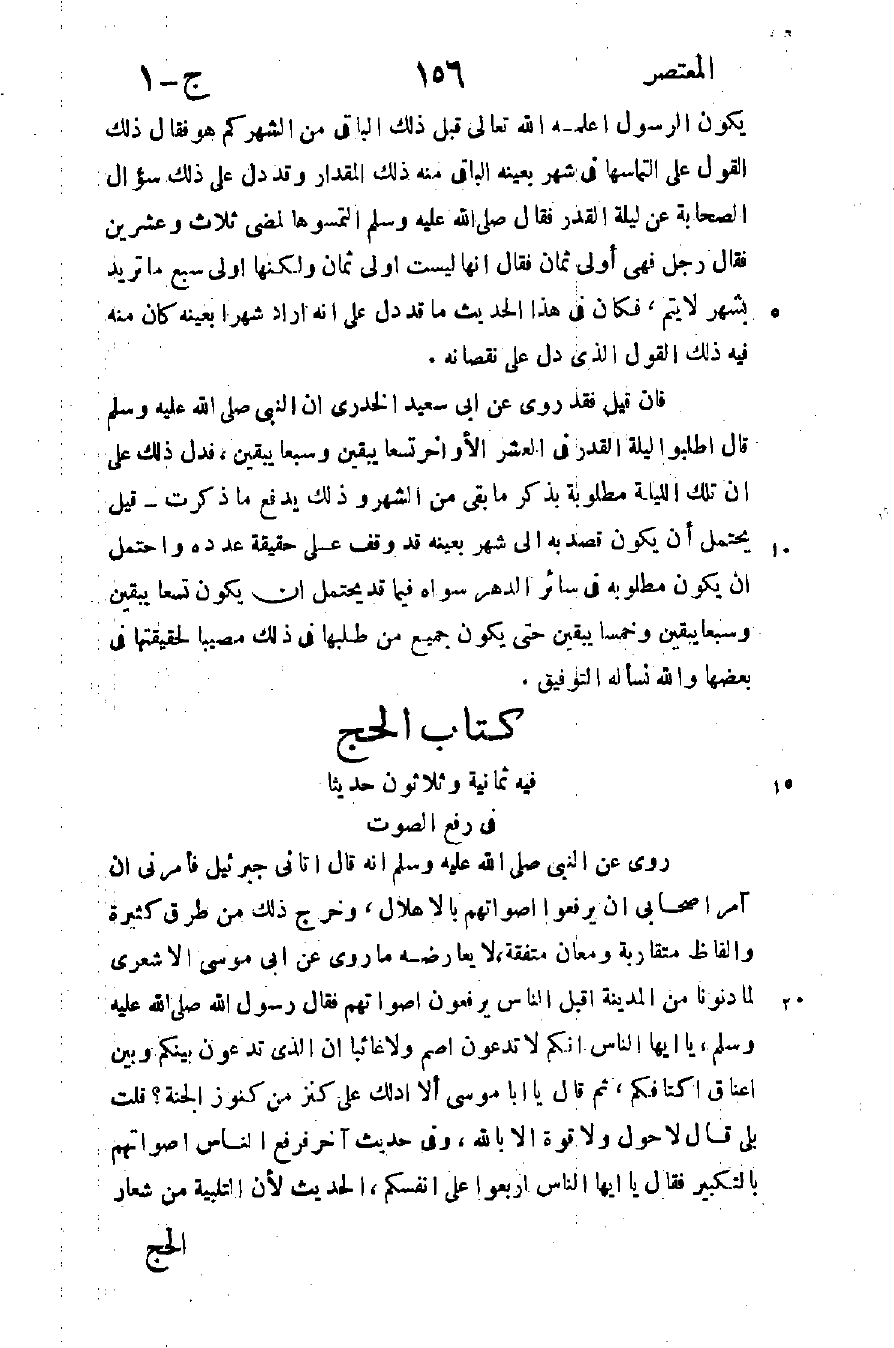 المعتصر ١٥٦ ج-١
يكون الرسول اعلمه الله تعالى قبل ذلك الباقى من الشهركم هو فقال ذلك
القول على التماسها فى شهر بعينه الباقى منه ذلك المقدار وقد دل على ذلك سؤال
الصحابة عن ليلة القدر فقال صلى الله عليه وسلم التمسوها لمضى ثلاث وعشرين
فقال رجل فهى أولى ثمان فقال انها ليست اولى ثمان ولكنها اولى سبع ما تريد
بشهر لايتم، فكان فى هذا الحديث ما قد دل على انه اراد شهرا بعينه كان منه ٥
فيه ذلك القول الذى دل على نقصانه .
فان قيل فقد روى عن ابى سعيد الخدرى ان النبى صلى الله عليه وسلم
قال اطلبوا ليلة القدر فى العشر الأواخر تسعا يبقين وسبعا يبقين، فدل ذلك على
ان تلك الليلة مطلوبة بذكر ما بقى من الشهر وذلك يدفع ما ذكرت - قيل
يحتمل أن يكون قصد به الى شهر بعينه قد وقف على حقيقة عدده واحتمل ١٠
ان يكون مطلوبه فى سائر الدهر سواه فيما قد يحتمل ان يكون تسعا يبقين
وسبعا يبقين وخمسا يبقين حتى يكون جميع من طلبها فى ذلك مصيبا لحقيقتها فى
بعضها والله نسأله التوفيق .
كتاب الحج
فيه ثمانية وثلاثون حديثا ١٥
فى رفع الصوت
روى عن النبى صلى الله عليه وسلم انه قال اتانى جبرئيل فأمرنى ان
آمر اصحابى ان يرفعوا اصواتهم بالاهلال، وخرج ذلك من طرق كثيرة
والفاظ متقاربة ومعان متفقة، لا يعارضه ماروى عن ابى موسى الاشعرى
لما دنونا من المدينة اقبل الناس يرفعون اصواتهم فقال رسول الله صلى الله عليه ٢٠
وسلم، يا ايها الناس انكم لا تدعون اصم ولا غائبا ان الذى تدعون بينكم وبين
اعناق اكتافكم، ثم قال يا ابا موسى ألا ادلك على كنز من كنوز الجنة؟ قلت
بلى قال لا حول ولا قوة الا بالله، وفى حديث آخر فرفع الناس اصواتهم
بالتكبير فقال يا ايها الناس اربعوا على انفسكم، الحديث لأن التلبية من شعار
الحج